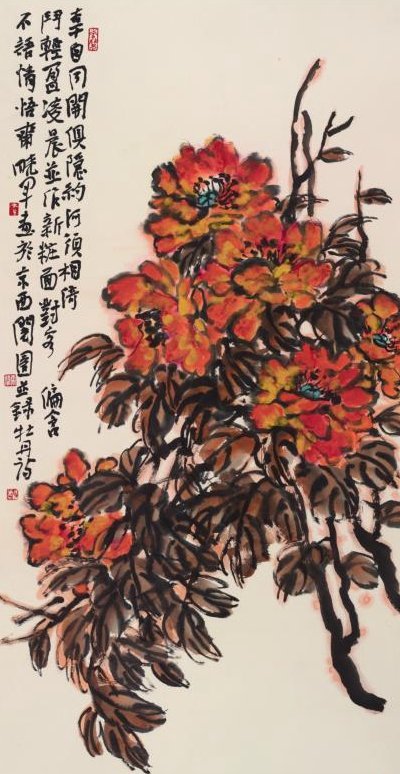 幸自同開俱隱約何須相倚
鬥輕盈凌晨並作新粧面對客偏含
不語情悟齋曉軍畫於京西園並錄牡丹詩